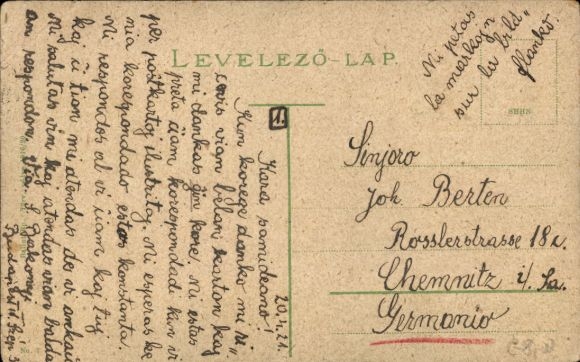 LEVELEZŐ-LAP.
Mi petas
la markojn
sur la bild"
flanko.
1.
20.4.21.
Kara samideano!
Kun korega danko mi ri"
cevis vian belan karton kaj
mi dankas ĝin kore. Mi estas
preta ĉiam korespondadi kun vi
per poŝtkartoj ilustritaj. Mi esperas ke
nia korespondado estos konstanta.
Mi respondos al vi ĉiam kaj tuj
kaj ĉi tion mi atendas de vi ankaŭ
Mi salutas vin kaj atendas vian baldaŭ
an respondon. Via
Sinjoro
Joh. Berten
Rosslerstrasse 18 I.
Chemnitz i/Sa.
Germanio